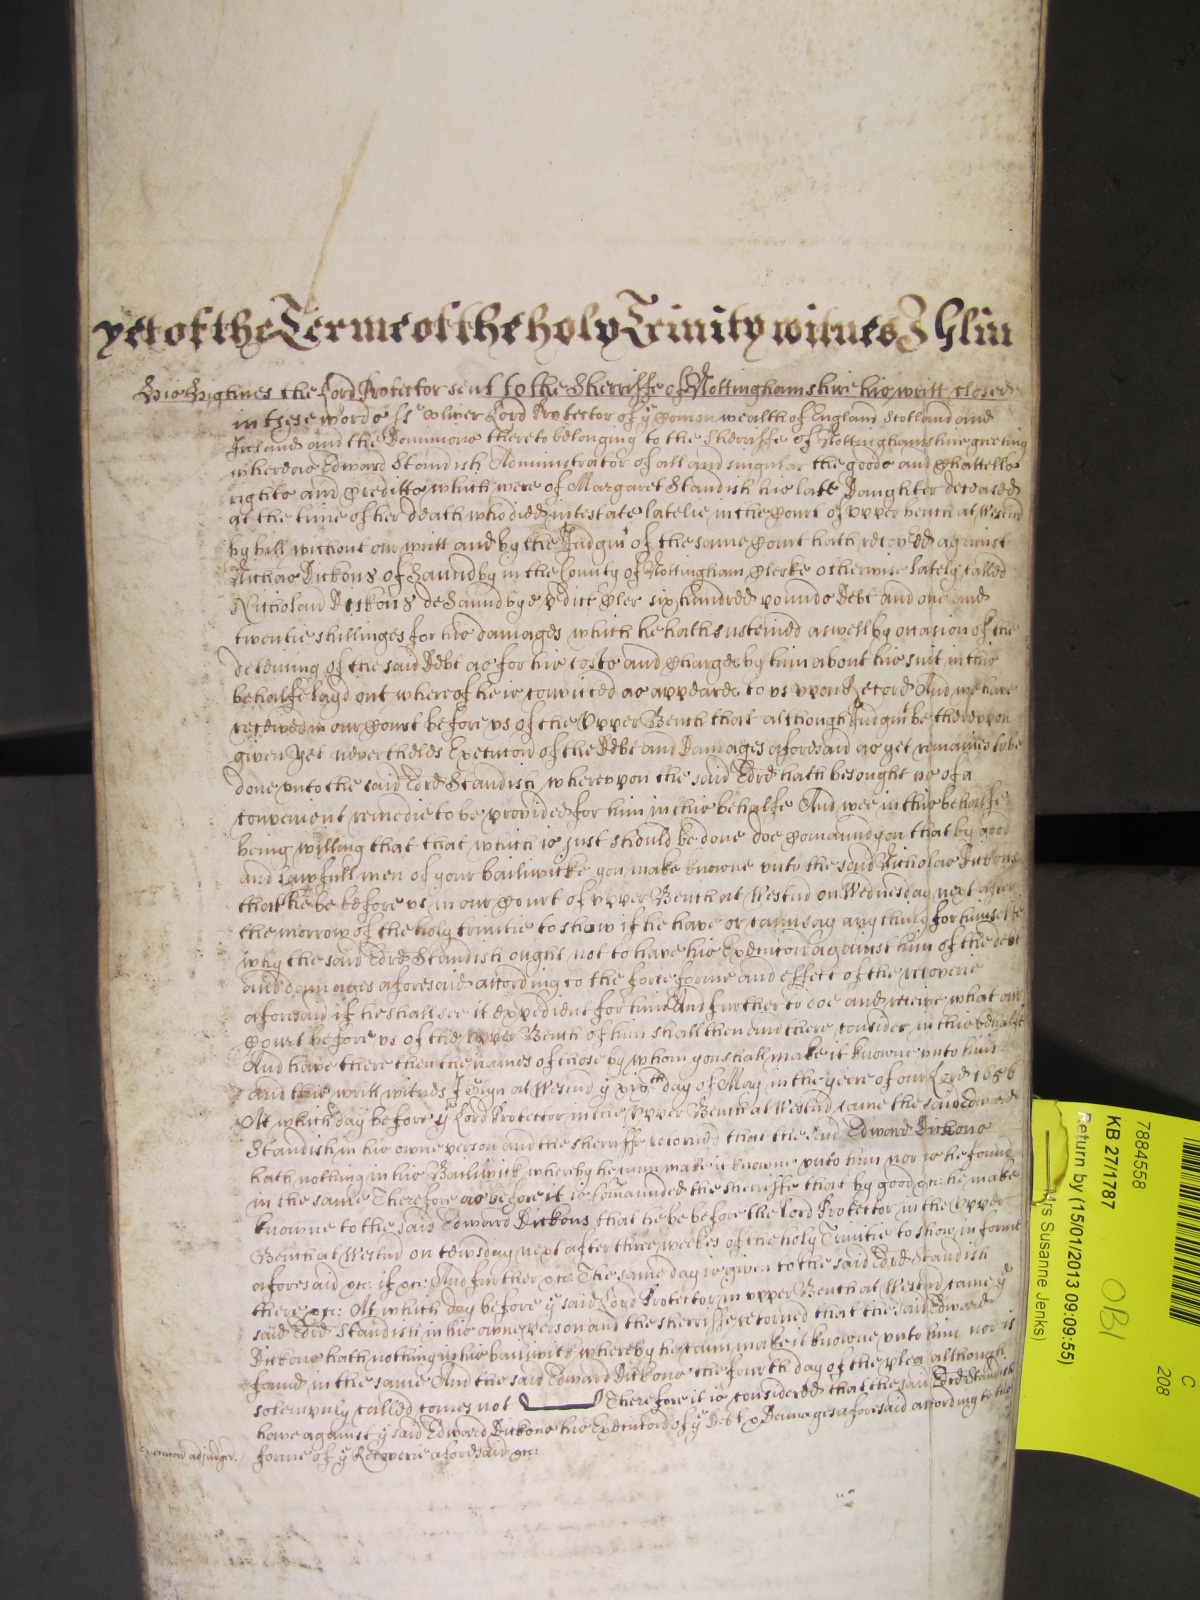 yet of the Terme of the holy Trinity witnes J Glin
His Highnes the Lord Protector sent to the Sherriffe of Nottinghamshire his writt closed
in these words ss Oliver Lord Protector of ye Comon wealth of England Scotland and
Ireland and the Dominions thereto belonging to the Sherriffe of Nottinghamshire greeting
whereas Edward Standish Administrator of all and singular the goods and Chattells
rights and Creditts which were of Margaret Standish his late Daughter deceased
at the time of her death who died intestate latelie in the Court of upper bench at Westmr
by bill without our writt and by the Judgmt of the same Court hath recoved against
Nichas Dickons of Saundby in the County of Nottingham Clerke otherwise lately called
Nicholaū Dickons de Saundbye p dict Cler six hundred pounds Debt and one and
twentie shillinges for his damages which he hath susteined aswell by occasion of the
deteining of the said Debt as for his costs and Charges by him about his suit in this
behalfe layd out whereof he is convicted as appeares to us upon Record And we have
receaved in our Court before us of the Upper Bench that although Judgmt be thereupon
given yet nevertheles Execucon of the Debt and Damages aforesaid as yet remaines to be
done unto the said Edrd Standish whereupon the said Edrd hath besought us of a
convenient remedie to be provided for him in this behalfe And wee in this behalfe
being willing that that which is just should be done doe Comaund you that by good
and Lawfull men of your bailiwicke you make knowne unto the said Nicholas Dickons
that he be before us in our Court of upper Bench at Westmr on Wednesday next after
the morrow of the holy trinitie to show if he have or cann say any thing for himselfe
why the said Edrd Standish ought not to have his Execucon against him of the debt
and damages aforesaid according to the force forme and effect of the recoverie
aforesaid if he shall see it expedient for him And further to doe and receive what our
Court before us of the upper Bench of him shall then and there consider in this behalfe
And have there then the names of those by whom you shall make it knowne unto him
and this writt witnes J Glyn at Westmr ye xiith day of May in the yeere of our Lord 1656
At which day before ye Lord Protector in the Upper Bench at Westmr came the said Edward
Standish in his owne person and the sherriffe retorned that the said Edward Dickons
hath nothing in his Bailiwick whereby he cann make it knowne unto him nor is he found
in the same Therefore as before it is Comaunded the sherriffe that by good &c: he make
knowne to the said Edward Dickons that he be before the Lord Protector in the Upper
Bench at Westmr on tewsday next after three weekes of the holy Trinitie to show in forme
aforesaid &c: if &c: And further &c: The same day is given to the said Edrd Standish
there &c: At which day before ye said Lord Protector in upper Bench at Westmr came ye
said Edrd Standish in his owne person and the sherriffe retorned that the said Edward
Dickons hath nothing in his bailiwick whereby he cann make it knowne unto him nor is
found in the same And the said Edward Dickons the fourth day of the plea although
solempnly called comes not Therefore it is considered that the said Edrd Standish
have against ye said Edward Dickons his Execucon of ye Debt & Damages aforesaid according to the
forme of ye Recoverie aforesaid &c:
Execucon adjudged
7884558
KB 27/1787
Return by (15/01/2013 09:09:55)
Mrs Susanne Jenks)
OBI
C
208